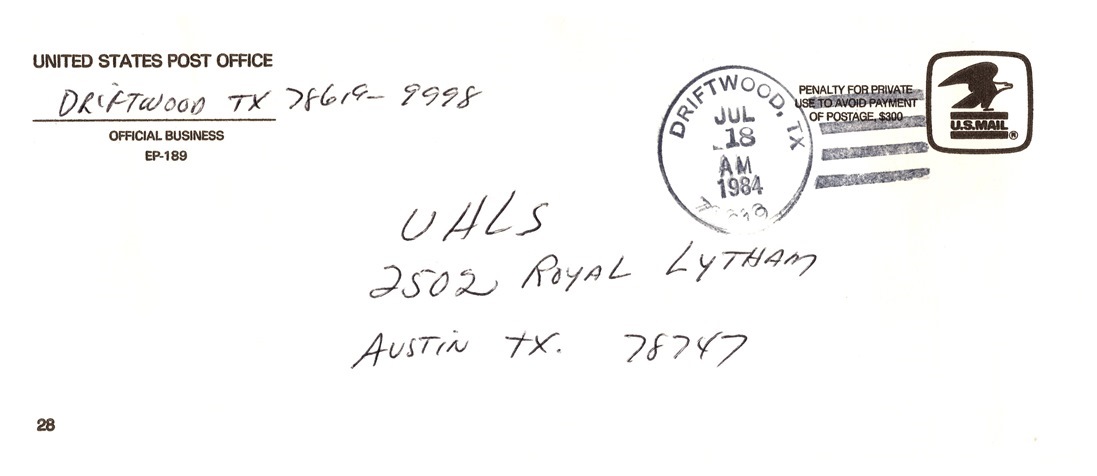 UNITED STATES POST OFFICE
DRIFTWOOD TX 78619-9998
OFFICIAL BUSINESS
EP-189
DRIFTWOOD, TX
JUL
18
AM
1984
PENALTY FOR PRIVATE
USE TO AVOID PAYMENT
OF POSTAGE, $300
U.S.MAIL
®
UHLS
2502 ROYAL LYTHAM
AUSTIN TX. 78747
28